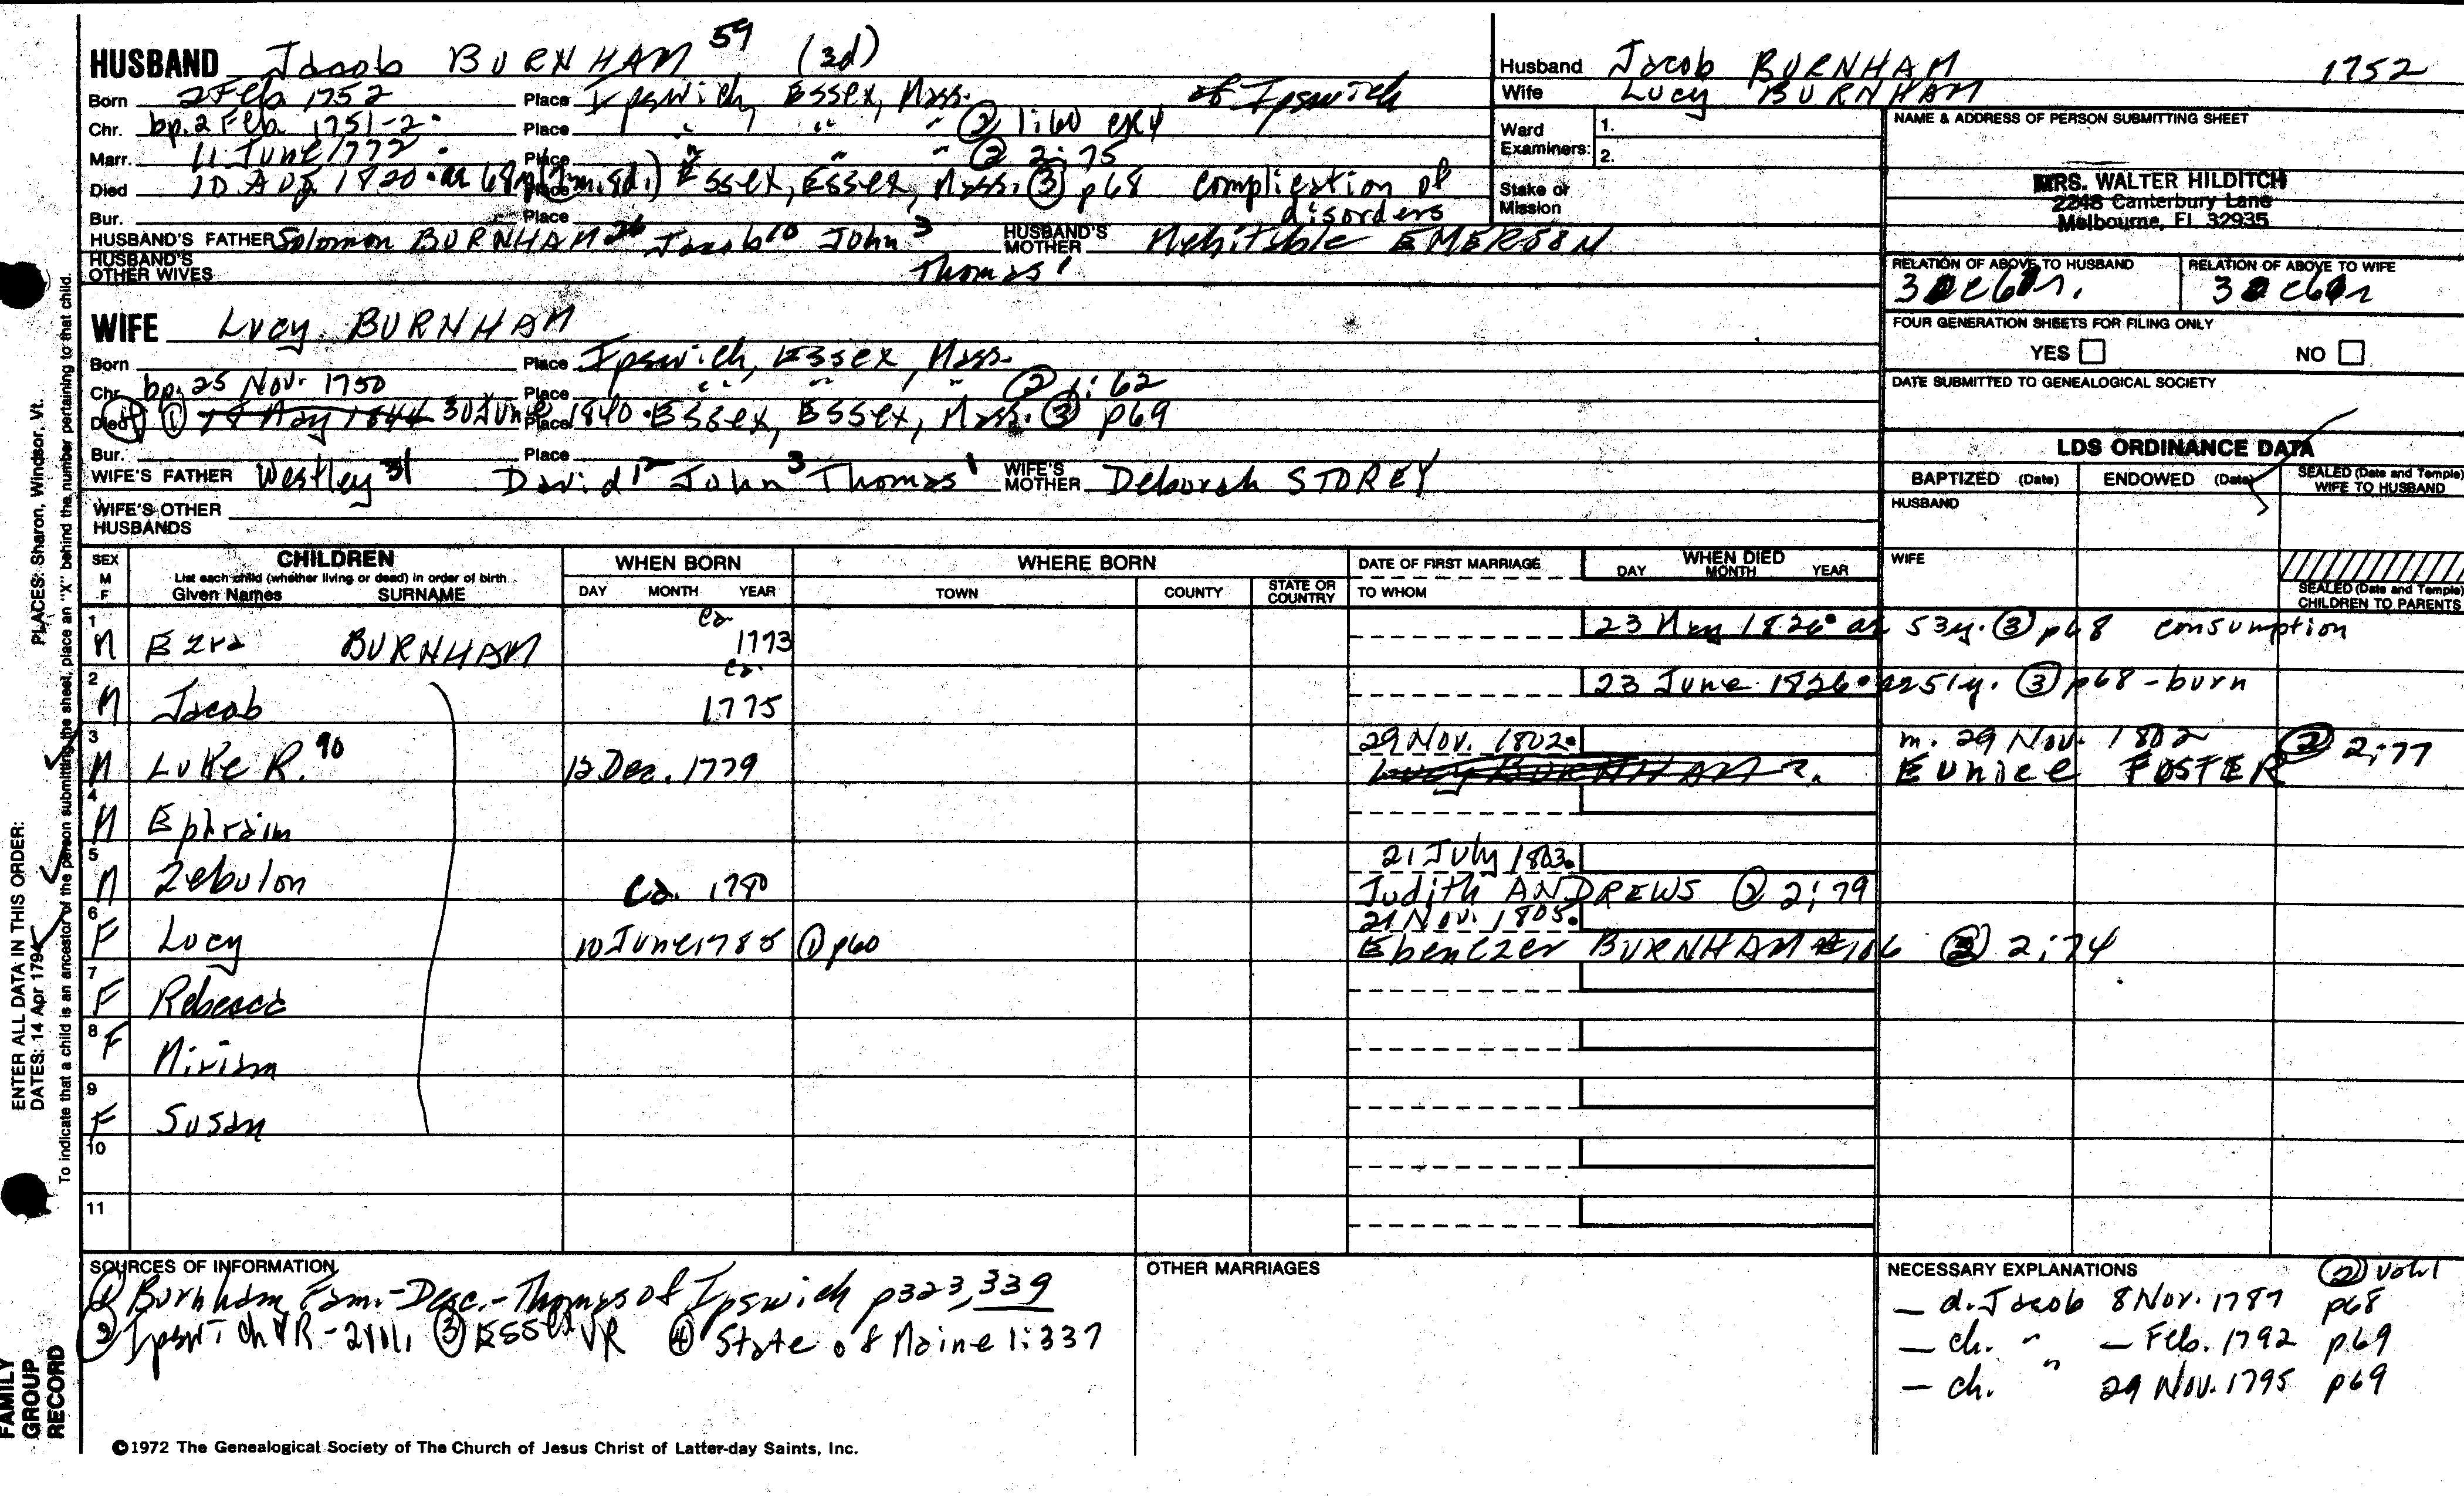 HUSBAND Jacob BURNHAM 59 (3d)
Born 2 Feb 1752 Place Ipswich, Essex, Mass. of Ipswich
Chr. bp. 2 Feb 1751-2. Place " " " ② 1:60
Marr. 11 June 1772. Place " " " ② 2:75
Died 10 Aug 1820. ae 68y Place Essex, Essex, Mass. ③ p68 complication of
disorders
Bur. Place
HUSBAND'S FATHER Solomon BURNHAM 26 Jacob 10 John 3 HUSBAND'S MOTHER Mehitable EMERSON
Thomas 1
HUSBAND'S OTHER WIVES
WIFE Lucy BURNHAM
Born Place Ipswich, Essex, Mass.
Chr. bp. 25 Nov. 1750 Place " " " ② 1:62
Died ④ ① 18 May 1844 30 June 1840. Place Essex, Essex, Mass. ③ p69
Bur. Place
WIFE'S FATHER Westley 31 David 12 John 3 Thomas 1 WIFE'S MOTHER Deborah STOREY
WIFE'S OTHER HUSBANDS
Husband Jacob BURNHAM 1752
Wife Lucy BURNHAM
Ward Examiners: 1.
2.
Stake or Mission
NAME & ADDRESS OF PERSON SUBMITTING SHEET
MRS. WALTER HILDITCH
2248 Canterbury Lane
Melbourne, Fl. 32935
RELATION OF ABOVE TO HUSBAND RELATION OF ABOVE TO WIFE
FOUR GENERATION SHEETS FOR FILING ONLY
YES NO
DATE SUBMITTED TO GENEALOGICAL SOCIETY
LDS ORDINANCE DATA
BAPTIZED (Date) ENDOWED (Date) SEALED (Date and Temple) WIFE TO HUSBAND
HUSBAND
WIFE
SEALED (Date and Temple) CHILDREN TO PARENTS
SEX M F CHILDREN WHEN BORN WHERE BORN DATE OF FIRST MARRIAGE WHEN DIED
List each child (whether living or dead) in order of birth
Given Names SURNAME DAY MONTH YEAR TOWN COUNTY STATE OR COUNTRY TO WHOM DAY MONTH YEAR
1 M Ezra BURNHAM ca 1773 23 May 1826. ae 53y. ③ p68 consumption
2 M Jacob ca. 1775 23 June 1826. ae 51y. ③ p68 - burn
3 M Luke R. 90 12 Dec. 1779 29 Nov. 1802. m. 29 Nov. 1802 ② 2:77
Lucy BURNHAM ?. Eunice FOSTER
4 M Ephraim
5 M Zebulon ca. 1780 21 July 1803.
Judith ANDREWS ② 2:79
6 F Lucy 10 June 1785 ① p60 21 Nov. 1805.
Ebenezer BURNHAM #106 ② 2:74
7 F Rebecca
8 F Miriam
9 F Susan
10
11
SOURCES OF INFORMATION
① Burnham Fam. - Desc. - Thomas of Ipswich p323, 339
② Ipswich VR - ③ Essex VR ④ State of Maine 1:337
OTHER MARRIAGES
NECESSARY EXPLANATIONS ② Vol 1
— d. Jacob 8 Nov. 1787 p68
— ch. " — Feb. 1792 p69
— ch. " 29 Nov. 1795 p69
©1972 The Genealogical Society of The Church of Jesus Christ of Latter-day Saints, Inc.
ENTER ALL DATA IN THIS ORDER: PLACES: Sharon, Windsor, Vt.
DATES: 14 Apr 1794
To indicate that a child is an ancestor of the person submitting the sheet, place an "X" behind the number pertaining to that child.
FAMILY
GROUP
RECORD